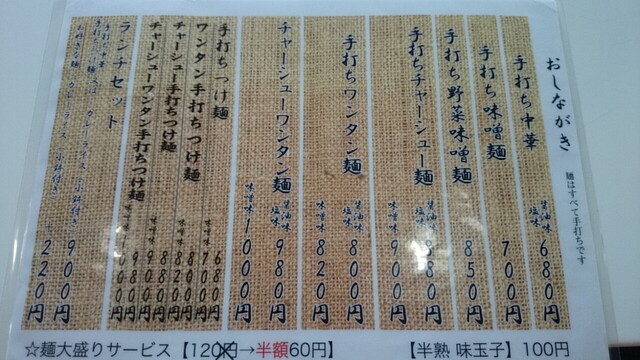 おしながき
麺はすべて手打ちです
手打ち中華 醤油味 塩味 680円
手打ち味噌麺 700円
手打ち野菜味噌麺 850円
手打ちチャーシュー麺 醤油味 塩味 880円
味噌味 900円
手打ちワンタン麺 醤油味 塩味 800円
味噌味 820円
チャーシューワンタン麺 醤油味 塩味 980円
味噌味 1000円
手打ちつけ麺 680円
味噌味 700円
ワンタン手打ちつけ麺 800円
味噌味 820円
チャーシュー手打ちつけ麺 880円
味噌味 900円
チャーシューワンタン手打ちつけ麺 980円
味噌味 1000円
ランチセット
900円
220円
☆麺大盛りサービス【120円→半額60円】
【半熟 味玉子】100円